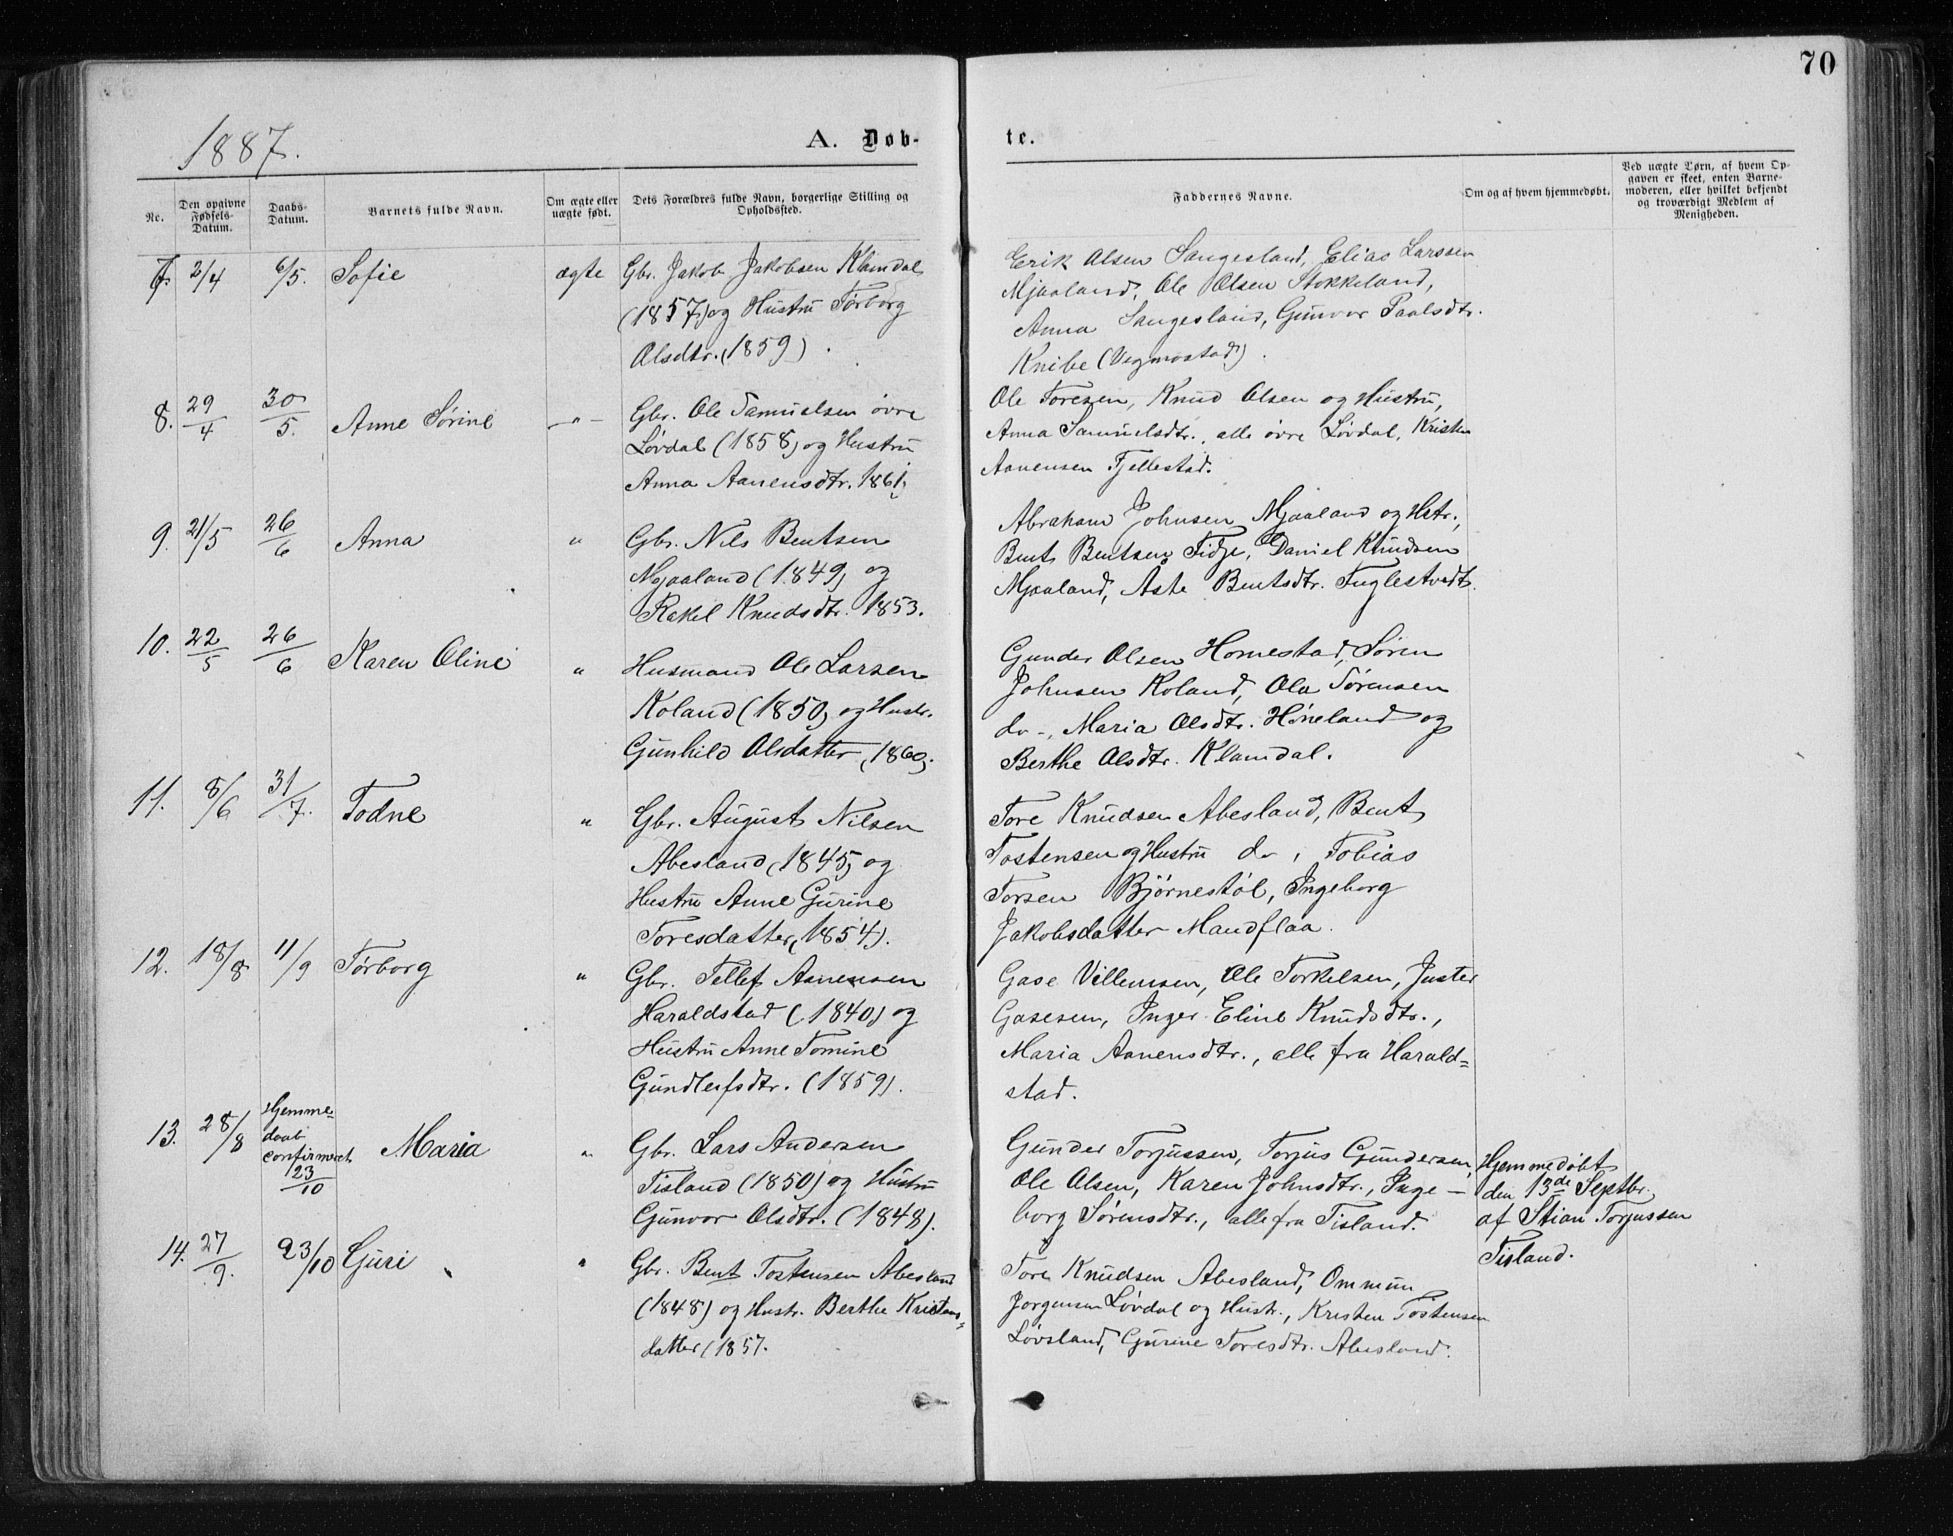 70
1887.
A. Døb-
te.
No.
Den opgivne Fødsels-Datum.
Daabs-Datum.
Barnets fulde Navn.
Om ægte eller uægte født.
Dets Forældres fulde Navn, borgerlige Stilling og Opholdssted.
Faddernes Navne.
Om og af hvem hjemmedøbt.
Ved uægte Børn, af hvem Opgaven er skeet, enten Barnemoderen, eller hvilket bekjendt og troværdigt Medlem af Menigheden.
7. 2/4 6/5. Sofie ægte
Gbr. Jakob Jakobsen Klamdal
(1857) og Hustru Tørborg
Olsdtr. (1859).
Erik Olsen Sangesland, Elias Larssen
Mjaaland, Ole Olsen Stokkeland,
Anna Sangesland, Gunvor Paalsdtr.
Knibe (Vegmostad).
8. 29/4 30/5. Anne Sørine -"-
Gbr. Ole Samuelsen øvre
Løvdal (1858) og Hustru
Anna Aanensdtr. 1861)
Ole Toresen, Knud Olsen og Hustru,
Anna Samuelsdtr., alle øvre Løvdal, Kristen
Aanensen Fjellestad.
9. 21/5 26/6 Anna "
Gbr. Nils Bentsen
Mjaaland (1849) og
Rakel Knudsdtr. 1853.
Abraham Johnsen Mjaaland og Hstr.,
Bent Bentsen Fidje, Daniel Knudsen
Mjaaland, Åste Bentsdtr. Fuglestvedt.
10. 22/5 26/6 Karen Oline "
Husmand Ole Larsen
Koland (1850) og Hustr.
Gunhild Olsdatter (1860).
Gunder Olsen Homestad, Søren
Johnsen Koland, Ola Sørensen
do-, Maria Olsdtr. Høneland og
Berthe Olsdtr. Klamdal.
11. 8/6 31/7. Todne "
Gbr. August Nilsen
Abesland (1845) og
Hustru Anne Gurine
Toresdatter (1854).
Tore Knudsen Abesland, Bent
Tostensen og Hustru do, Tobias
Torsen Bjørnestøl, Ingeborg
Jakobsdatter Mandflaa.
12. 18/8 11/9 Tørborg "
Gbr. Tellef Aanensen
Haraldstad (1840) og
Hustru Anne Tomine
Gundleifsdtr. (1859).
Gase Villemsen, Ole Torkelsen, Juster
Gasesen, Inger Eline Knudsdtr.,
Maria Aanensdtr., alle fra Harald=
stad.
13. 28/8 Hjemme-
daab
confirmeret
23/10
Maria "
Gbr. Lars Andersen
Tisland (1850) og Hustru
Gunvor Olsdtr. (1848).
Gunder Torjussen, Torjus Gundersen,
Ole Olsen, Karen Johnsdtr., Inge-
borg Sørensdtr., alle fra Tisland.
Hjemmedøbt
den 13de Septbr.
af Stian Torjussen
Tisland.
14. 27/9. 23/10 Guri "
Gbr. Bent Tostensen Abesland
(1848) og Hustr. Berthe Kristens=
datter (1857.
Tore Knudsen Abesland, Ommun
Jørgensen Løvdal og Hustr., Kristen Tostensen
Løvsland, Gurine Toresdtr. Abesland.